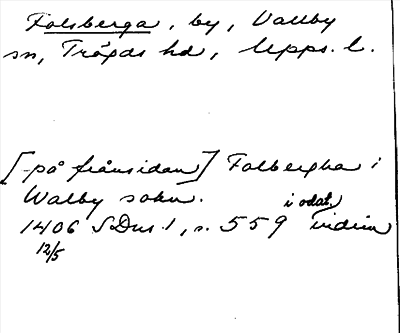 Folsberga, by, Vallby
sn, Trögds hd, Upps. l.
[-på frånsidan] Folbergha i
Walby sokn.
i odat.
1406 SDns 1, s. 559 indim
12/5